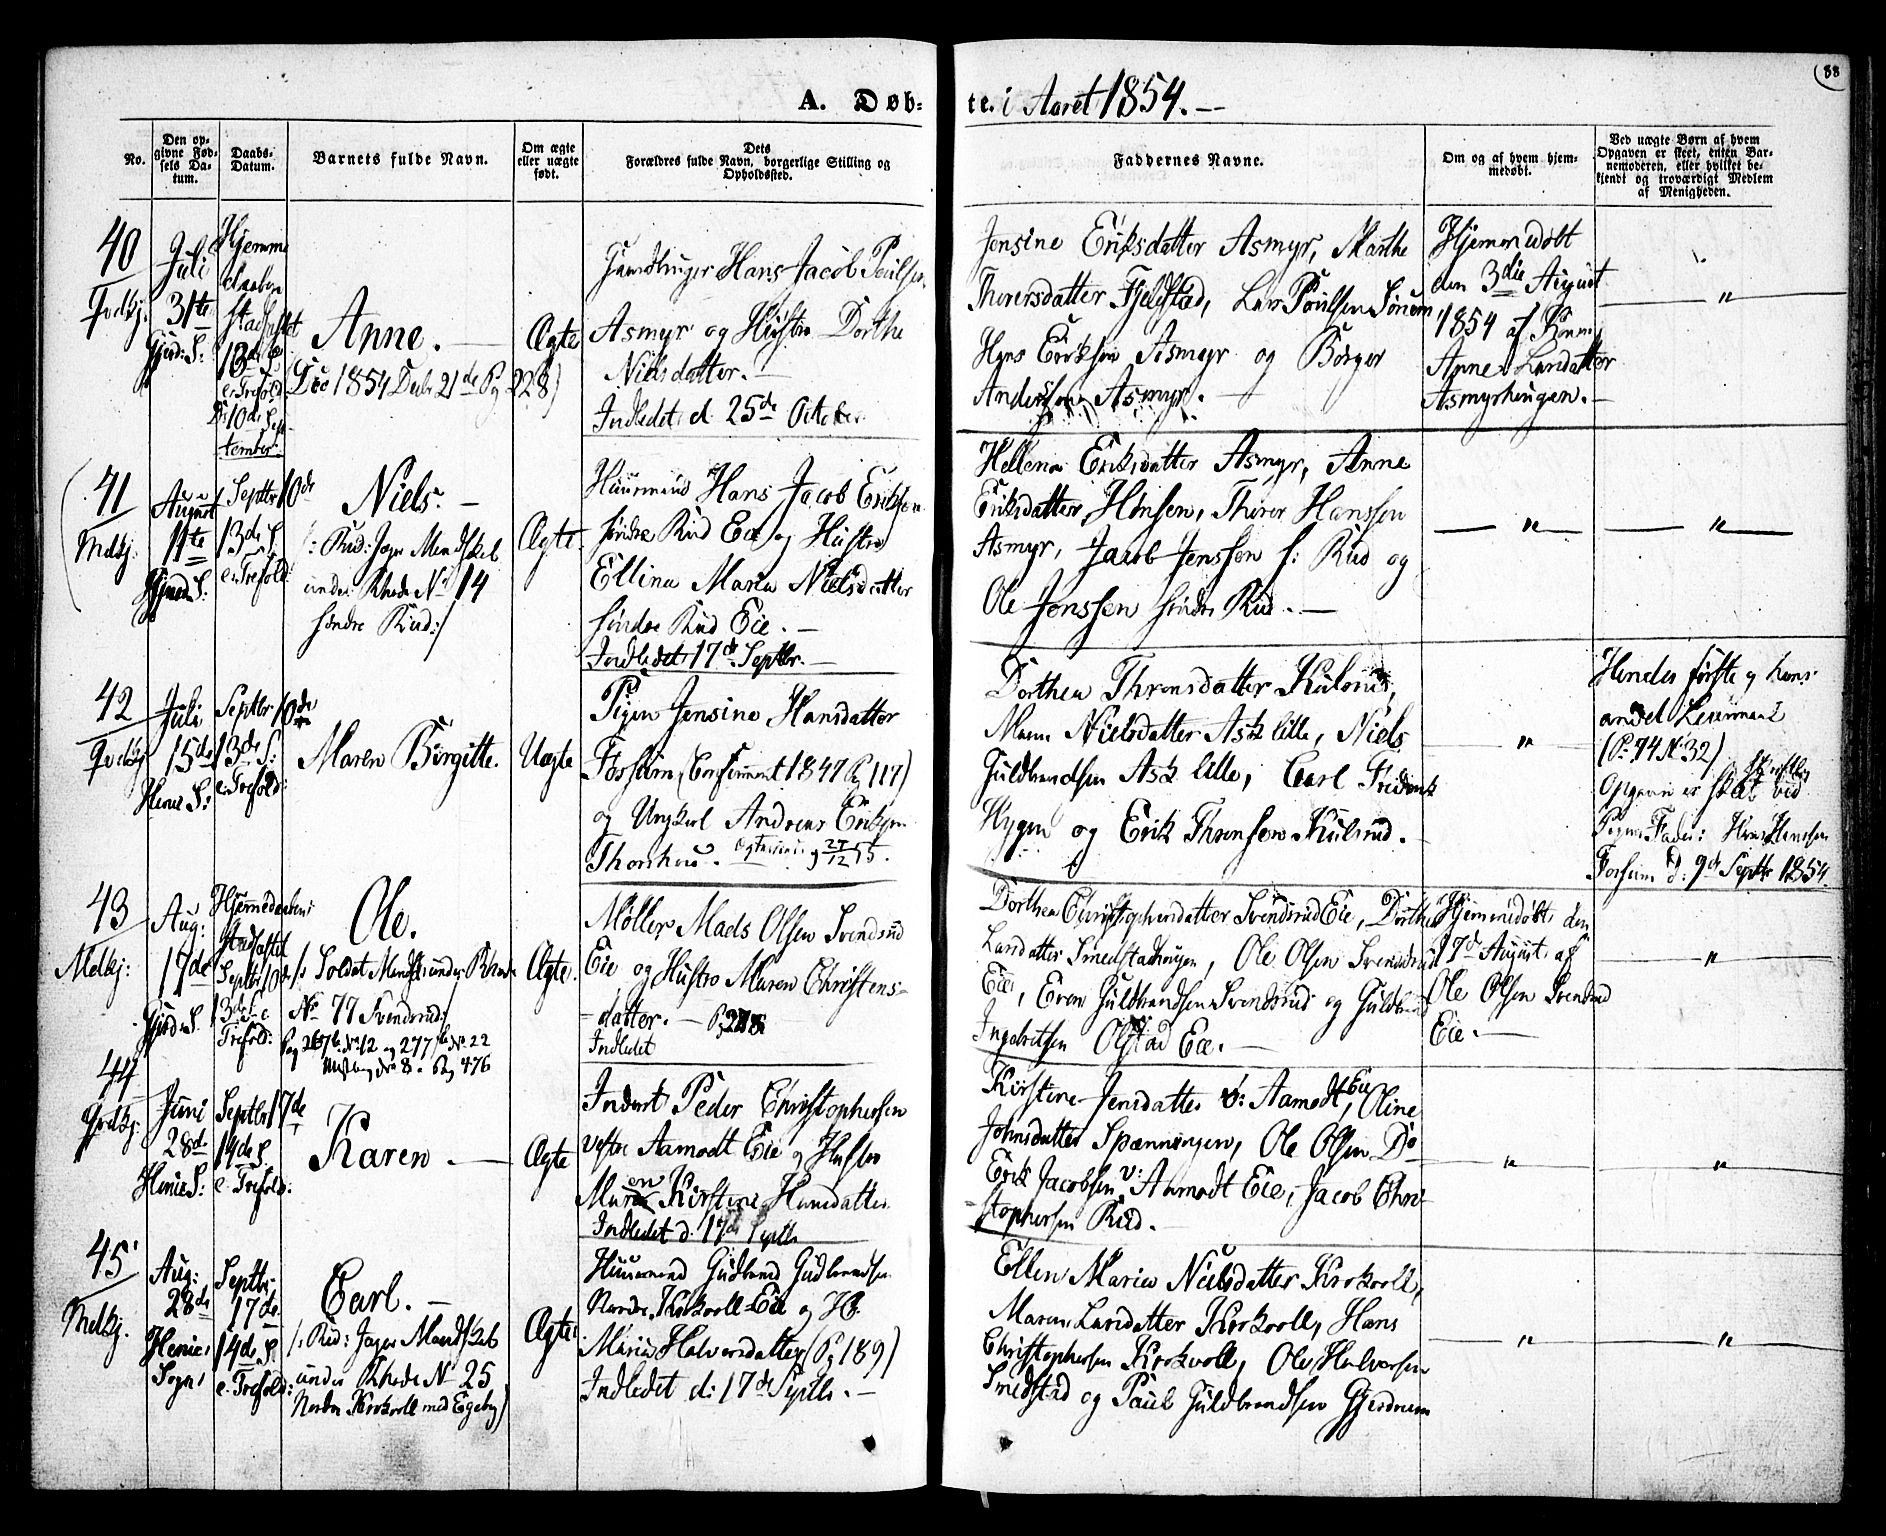 88
A. Døb-
te. i Aaret 1854. —
No.
Den op-
givne Fød-
sels Da-
tum.
Daabs-
Datum.
Barnets fulde Navn.
Om ægte
eller uægte
født.
Dets
Forældres fulde Navn, borgerlige Stilling og
Opholdssted.
Faddernes Navne.
Om og af hvem hjem-
medøbt.
Ved uægte Børn af hvem
Opgaven er skeet, enten Bar-
nemoderen, eller hvilket be-
kjendt og troværdigt Medlem
af Menigheden.
40
Juli
31te
Gjerd: S:
Hjemme
daaben
stadfæstet
13de S.
e. Trefold:
D: 10de Sep-
tember.
Anne. —
Døe 1854 Decbr 21de Pg 228)
Ægte
Hans Jacob Poulsen
Asmyr og Hustro Dorthe
Nielsdatter. —
Indledet d. 25de October
Jensine Eriksdatter Asmyr, Marthe
Thorersdatter Fjeldstad, Lars Poulsen Sørum
Hans Eriksen Asmyr og Børger
Andersen Asmyr. —
Hjemmedøbt
den 3die August
1854 af Kone
Anne Larsdatter
Asmyrhaugen. —
"
41
Melkj:
August
11te
Gjerd: S:
Septbr 10de
13de S.
e. Trefold:
Niels. —
/: Rid: Jager Mandskab
under Rhode No 14
søndre Rud :/
Ægte.
Huusmand Hans Jacob Eriksen
søndre Rud Eie og Hustro
Ellina Maria Nielsdatter
søndre Rud Eie. —
Indledet 17de Septbr. —
Hellena Eriksdatter Asmyr, Anne
Eriksdatter Hønsen, Thorer Hanssen
Asmyr, Jacob Jenssen s: Rud og
Ole Jenssen søndre Rud. —
— " —
— " —
42
Juli
15de
Henie S:
Septbr 10de
13de S:
e. Trefold:
Maren Birgitte.
Uægte
Pigen Jensine Hansdatter
Fossum (Confirmeret 1847 Pg 117)
og Ungkarl Andreas Eriksen
Thorshou. Ægteviede 27/12 55.
Dorthea Thronsdatter Kulsrud,
Maren Nielsdatter Ask lille, Niels
Guldbrandsen Ask lille, Carl Fredrik
Hygen og Erik Thronsen Kulsrud.
"
Hendes første og hans
andet Leiermaal
(P. 74 N: 32) skriftlig
Opgave er skeet ved
Pigens Fader: Hans Hanssen
Fossum d: 9de Septbr 1854.
43
Melkj:
Aug:
17de
Gjerd: S.
Hjemmedaaben
stadfæstet
Septbr 10de
13de S. e.
Trefold:
Ole.
/: Soldat Mandsk: under Rhode
No 77 Svendsrud :/
Ægte.
Møller Mads Olsen Svendsrud
Eie og Hustro Maren Christens-
datter. —
Indledet
Dorthea Christophersdatter Svendsrud Eie, Dorthe
Larsdatter Smedstadhaugen, Ole Olsen Svendsrud
Eie, Even Guldbrandsen Svendsrud og Guldbrand
Ingebretsen Olstad Eie. —
Hjemmedøbt den
17de August af
Ole Olsen Svendsrud
Eie. —
— " —
44
Juni
28de
Henie S:
Septbr 17de
14de S.
e. Trefold:
Karen —
Ægte
Inderst Peder Christophersen
vestre Aamodt Eie og Hustro
Maren Kirstine Hansdatter
Indledet d. 17de Septbr
Kirstine Jensdatter v: Aamodt Eie, Oline
Johnsdatter Spænningen, Ole Olsen Do
Erik Jacobsen v: Aamodt Eie, Jacob Chri-
stophersen Rud. —
"
"
45
Melkj.
Aug:
28de
Henie
Sogn
Septbr
17de
14de S.
e. Trefold:
Carl. —
/: Rid: Jager Mandskab
under Rhode No 25
Nordre Krokvoll med Egeby)
Ægte
Huusmand Gudbrand Gudbrandsen
Nordre Krokvoll Eie og H:
Maria Halvorsdatter (Pg 189)
Indledet d: 17de Septbr. —
Ellen Maria Nielsdatter Krokvoll,
Maren Larsdatter Krokvoll, Hans
Christophersen Krokvoll, Ole Halvorsen
Smedstad og Paul Guldbrandsen Gjerdrum
— " —
— " —